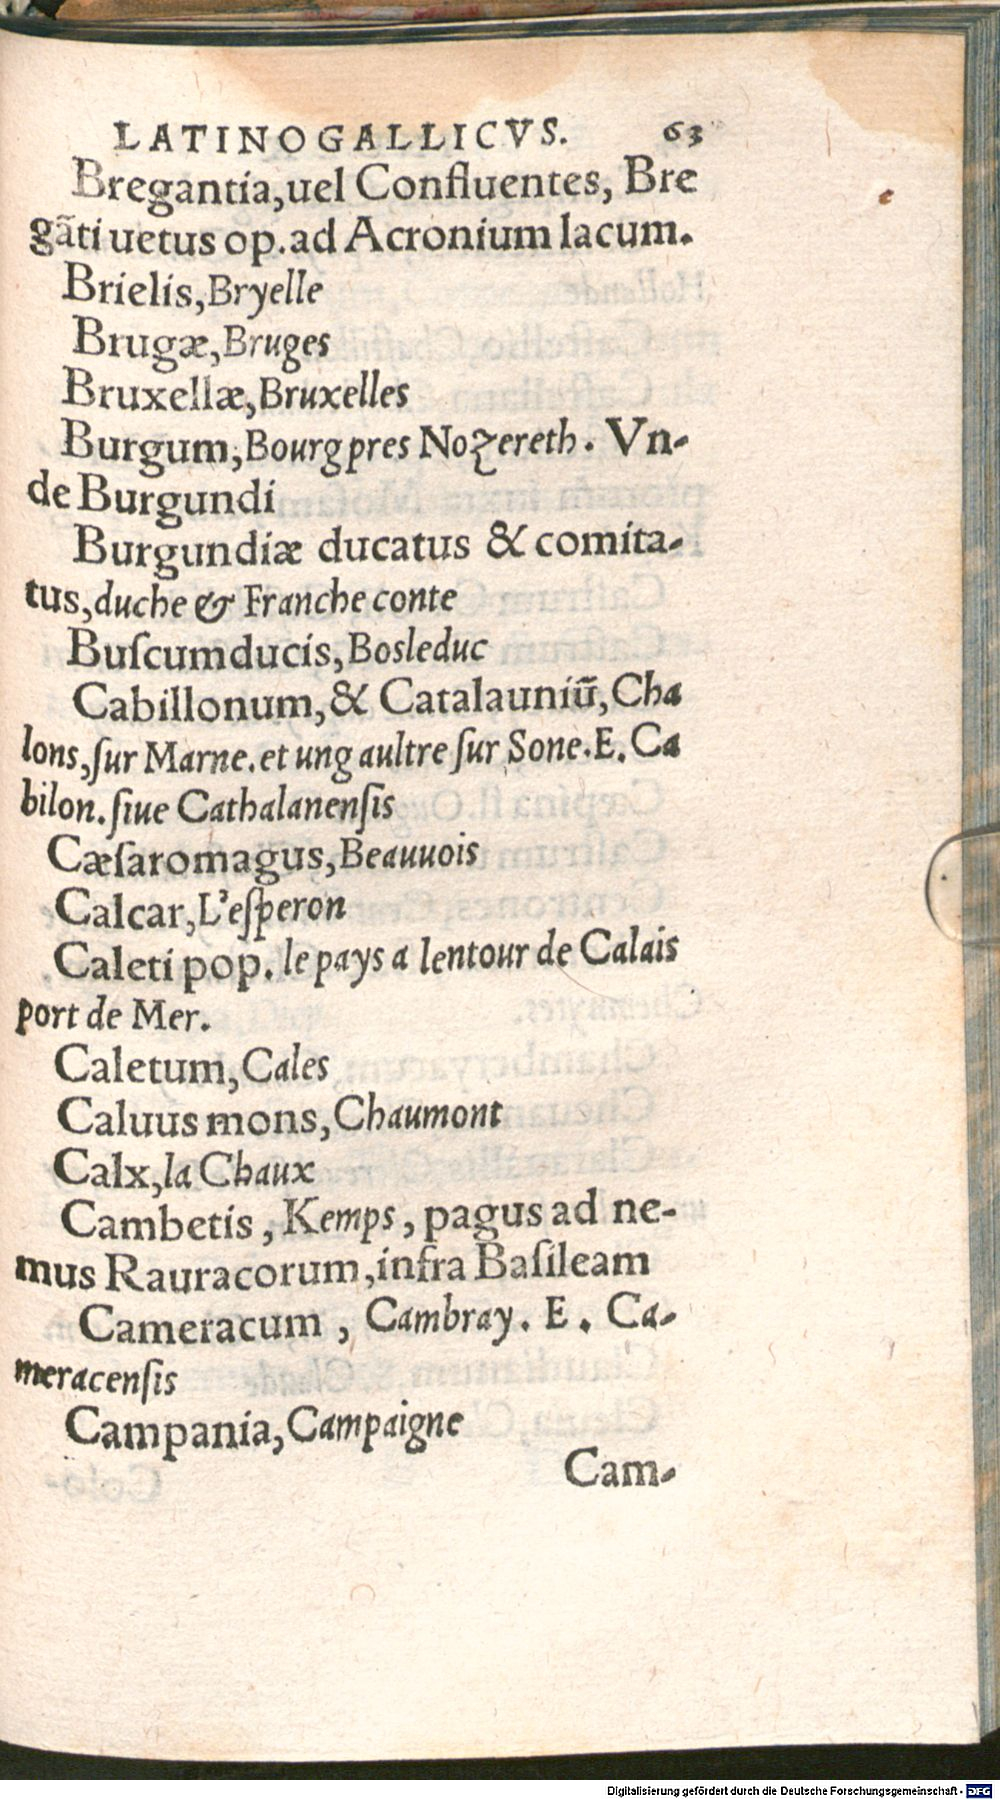 LATINOGALLICVS. 63
Bregantia,uel Confluentes, Bre
gãti uetus op.ad Acronium lacum.
Brielis,Bryelle
Brugæ,Bruges
Bruxellæ,Bruxelles
Burgum,Bourg pres Nozereth. Vn-
de Burgundi
Burgundiæ ducatus & comita-
tus,duche & Franche conte
Buſcumducis,Bosleduc
Cabillonum,& Catalauniũ,Cha
lons,ſur Marne.et ung aultre ſur Sone.E.Ca
bilon.ſiue Cathalanenſis
Cæſaromagus,Beauuois
Calcar,L'eſperon
Caleti pop. le pays a lentour de Calais
port de Mer.
Caletum,Cales
Caluus mons,Chaumont
Calx,la Chaux
Cambetis, Kemps, pagus ad ne-
mus Rauracorum,infra Baſileam
Cameracum, Cambray. E. Ca-
meracenſis
Campania,Campaigne
Cam-
Digitalisierung gefördert durch die Deutsche Forschungsgemeinschaft - DFG